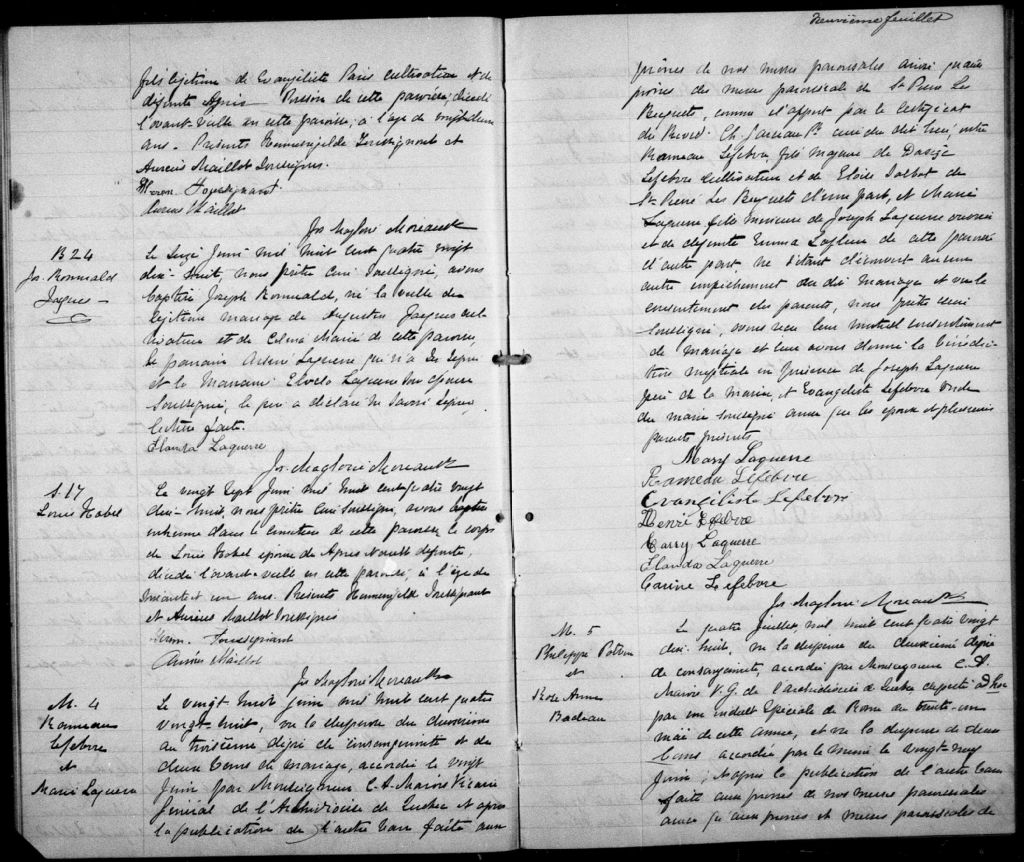 fils légitime de Evangéliste Paris cultivateur et de
défunte Agnès Brisson de cette paroisse, décédé
l'avant-veille en cette paroisse, à l'age de vingt deux
ans. Présents Herménégilde Toussignant et
Aureus Maillot soussignés.
Herm. Toussignant
Aureus Maillot
Jos Magloire Moreault Ptre
B 24
Jos. Romuald
Jaques
Le Seize Juin mil huit cent quatre vingt
dix-huit, nous prêtre curé soussigné, avons
baptisé Joseph Romuald, né la veille du
légitime mariage de Augustin Jacques cul-
tivateur et de Marie de cette paroisse,
Le parrain Laguerre qui n'a su signer
et la Marraine Laguerre son épouse
soussignée, le père a déclaré ne savoir signer
lecture faite.
Elauda Laguerre
Jos. Magloire Moreault Ptre
S. 17
Louis Habel
Le vingt sept Juin mil huit cent quatre vingt
dix-huit, nous prêtre curé soussigné, avons
inhumé dans le cimetière de cette paroisse, le corps
de Louis Habel époux de Agnès défunte,
décédé l'avant-veille en cette paroisse, à l'âge de
et un ans. Présents Herménégilde Toussignant
et Aureus Maillot soussignés
Herm. Toussignant
Maillot
Jos Magloire Moreault Ptre
M. 4
Rameau
Lefebvre
et
Marie Laguerre
Le vingt huit Juin mil huit cent quatre
vingt huit, vu la dispense du deuxième
au troisième dégré de consanguinité et de
deux bans de mariage, accordée le vingt
Juin par Monseigneur C. A. Marois Vicaire
Général de l'Archidiocèse de Québec et après
la publication de l'autre ban faite aux
deuxième feuillet
prônes de nos messes paroissiales ainsi qu'aux
prônes des messes paroissiales de St Pierre Les
Becquets, comme il appert par le certificat
du Révd. Ch. curé du dit lieu, entre
Rameau Lefebvre, fils majeur de
Lefebvre cultivateur et de Eloïse Talbot de
St. Pierre Les Becquets d'une part, et Marie
Laguerre fille mineure de Joseph Laguerre
et de défunte Emma Lafleur de cette paroisse
d'autre part, ne s'étant découvert aucun
autre empêchement au dit mariage et vu le
consentement des parents, nous prêtre curé
soussigné, avons reçu leur mutuel consentement
de mariage et leur avons donné la bénédic-
tion nuptiale en présence de Joseph Laguerre
père de la mariée, et Evangéliste Lefebvre oncle
du marié soussignés ainsi que les époux et plusieurs
parents présents
Mary Laguerre
Rameau Lefebvre
Evangéliste Lefebvre
Henri Lefebvre
Carry Laguerre
Elauda Laguerre
Carine Lefebvre
Jos Magloire Moreault Ptre
M. 5
Philippe Potvin
et
Rose Anna
Badeau
Le quatre Juillet, mil huit cent quatre vingt
dix-huit, vu la dispense du deuxième dégré
de consanguinité, accordée par Monseigneur C. A.
Marois V. G. de l'archidiocèse de Québec député ad hoc
par un indult spécial de Rome du trente-un
mai de cette année, et vu la dispense de deux
bans accordée par le même le vingt-neuf
Juin; et après la publication de l'autre ban
faite aux prônes de nos messes paroissiales
ainsi qu'aux prônes des messes paroissiales de